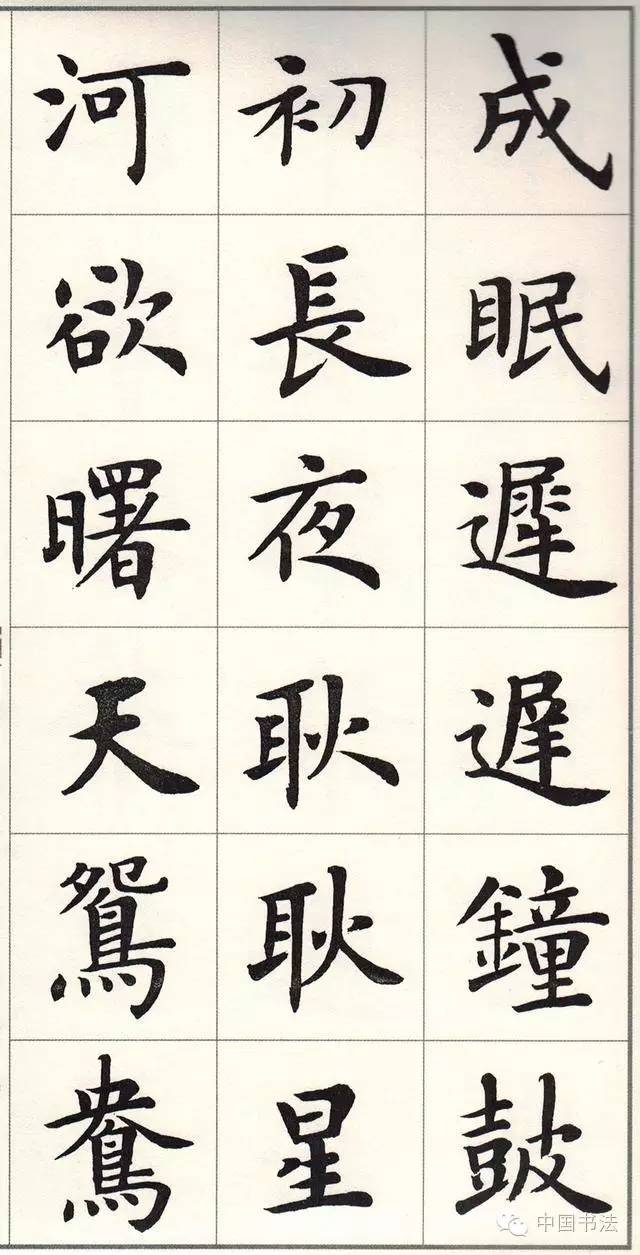 成眠遲遲鐘鼓
初長夜耿耿星
河欲曙天鴛鴦
中国书法